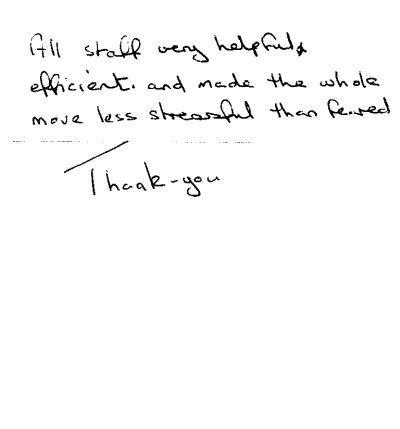 All staff very helpful &
efficient. and made the whole
move less stressful than feared
Thank-you